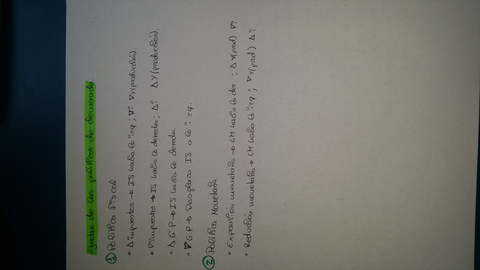 Ajustes de las políticas de demanda
① Política Fiscal
• Δ impuestos → IS hacia la izq ; ∇i ∇Y (producción).
• ∇ impuestos → IS hacia la derecha ; Δi ΔY (producción)
• Δ G.P → IS hacia la derecha
• ∇ G.P → Desplaza IS a la izq.
② Política Monetaria
• Expansión monetaria → LM hacia la der ; ΔY (prod) ∇i.
• Reducción monetaria → LM hacia la izq ; ∇Y (prod) Δi